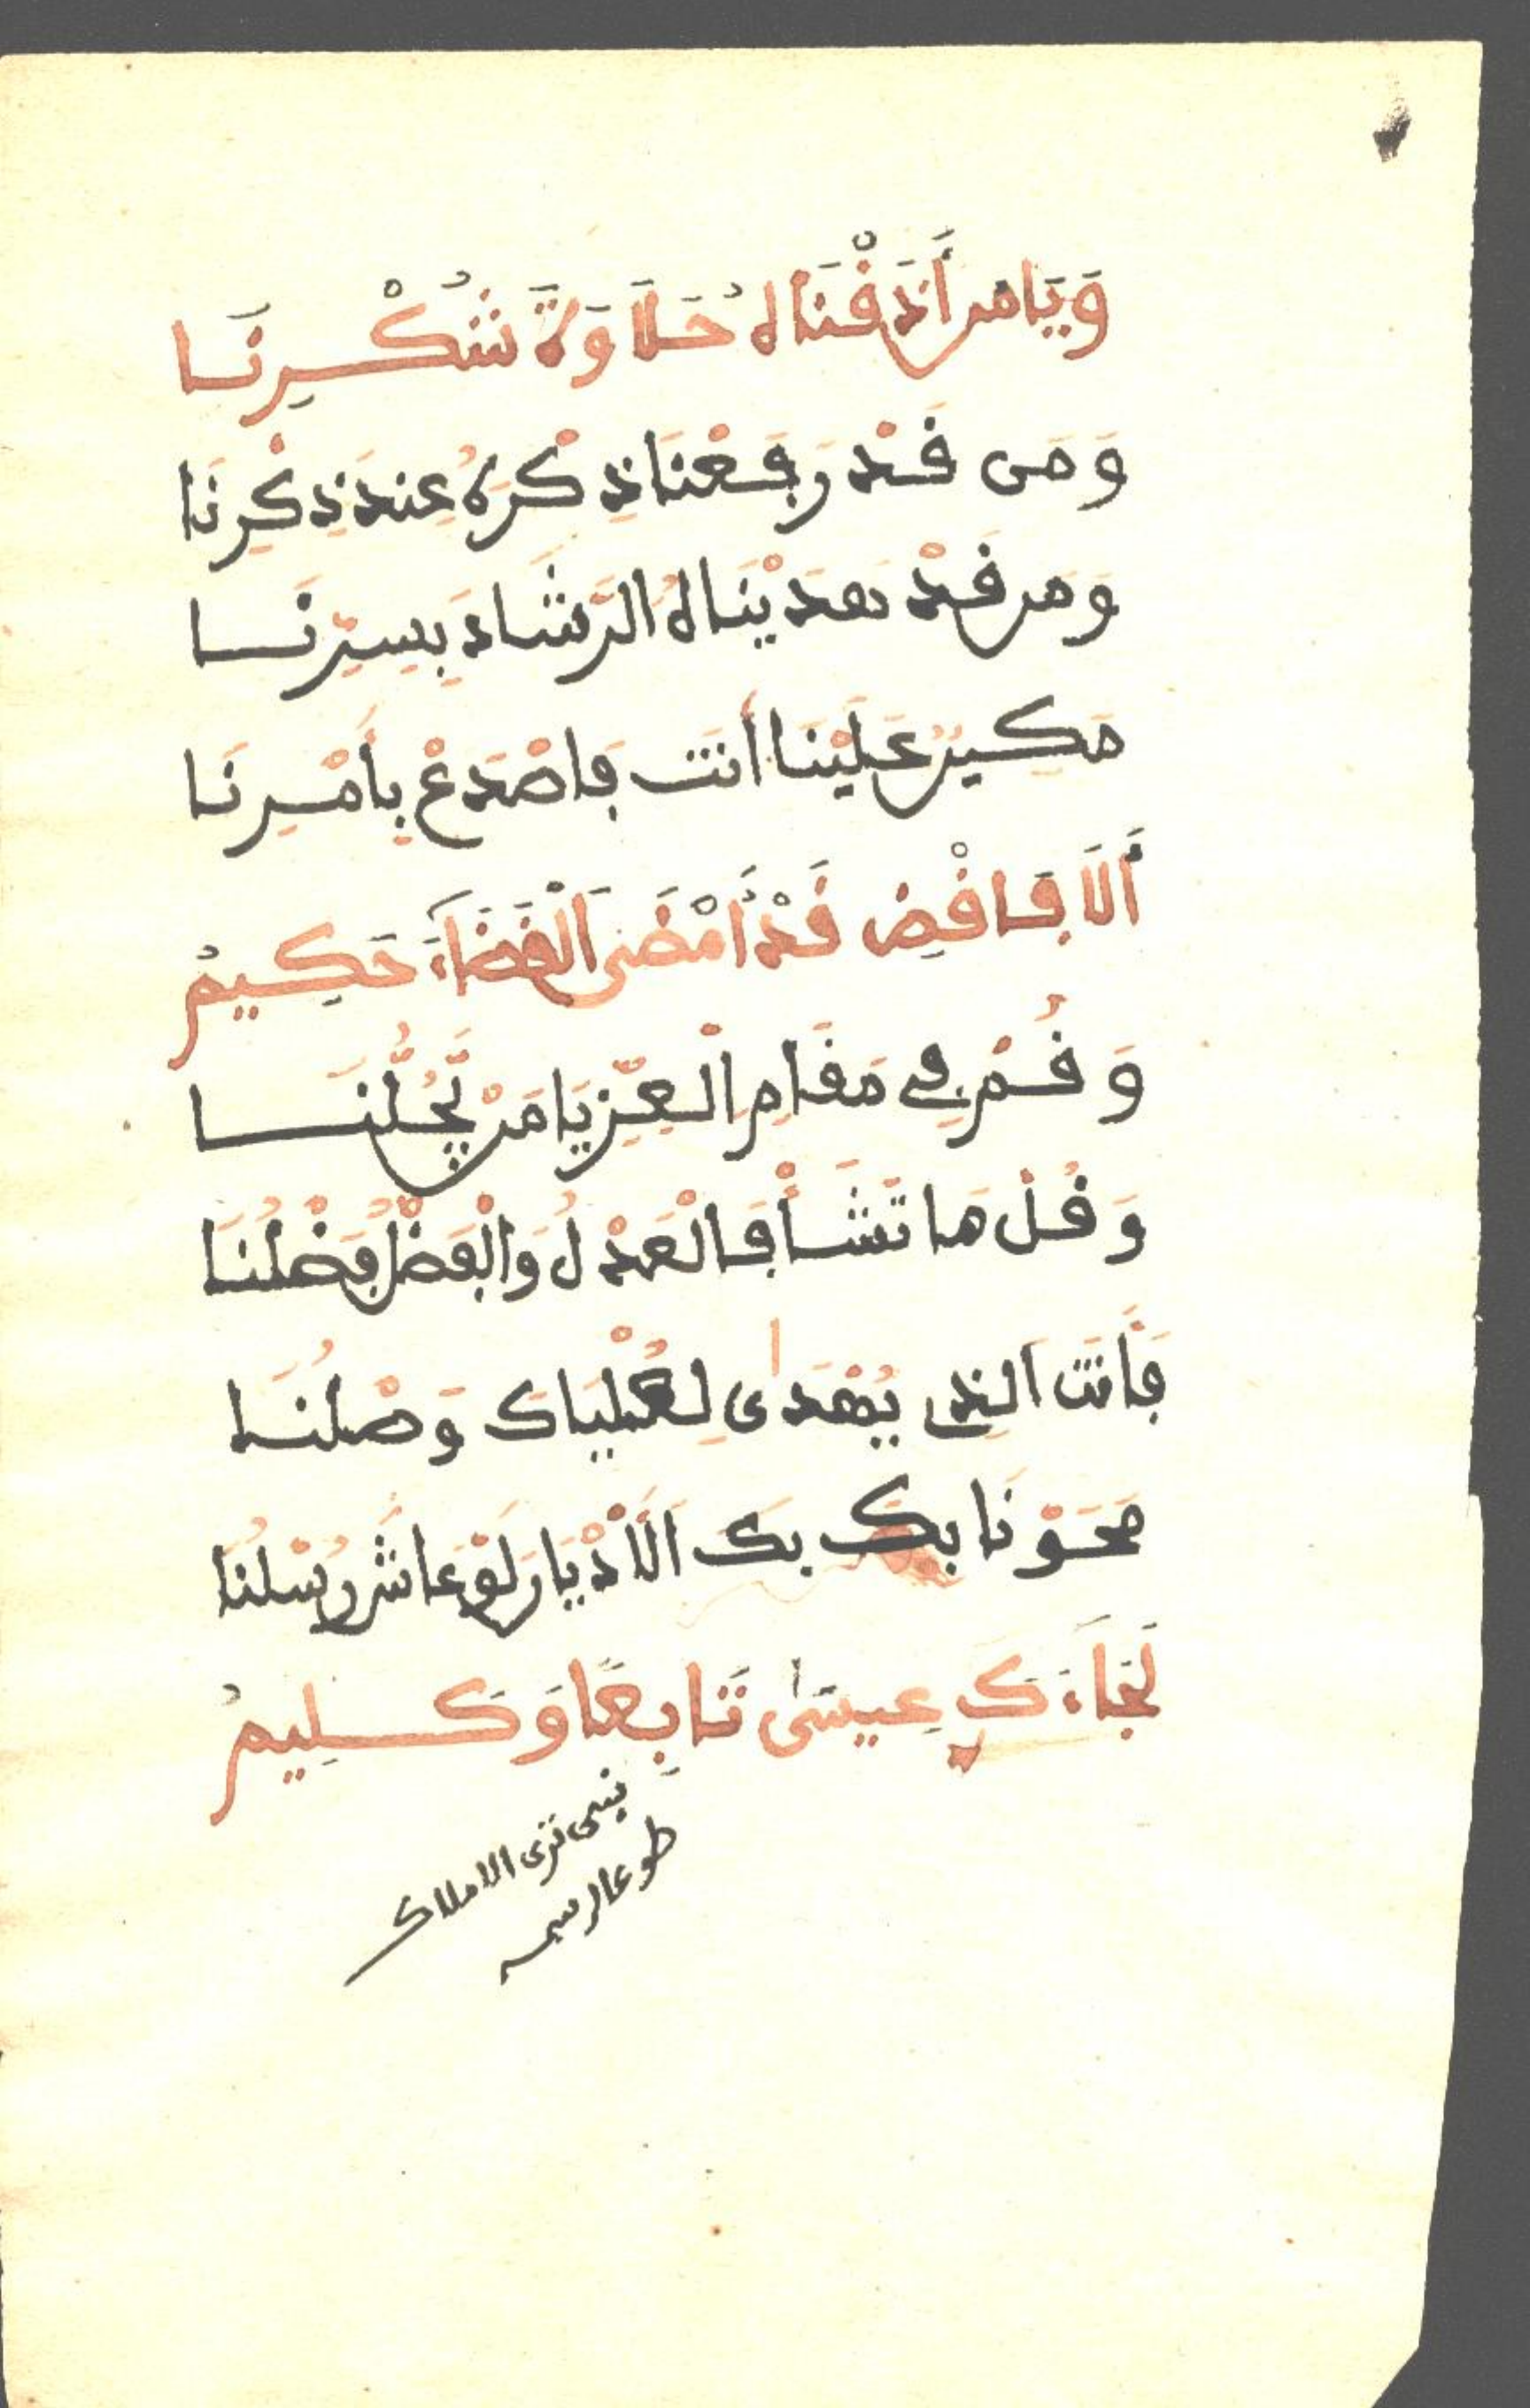 وَيَا مَن أَذَقْنَا لهُ حَلَاوَةَ شُكْرِنَا
وَمَن قَدْ رَفَعْنَا ذِكْرَهُ عِندَ ذِكْرِنَا
وَمَن قَدْ هَدَيْنَا لهُ الرَّشَادَ بِسِرِّنَا
مَكِينٌ عَلَيْنَا أَنتَ فَاصْدَعْ بِأَمْرِنَا
أَلَا فَاقْضِ قَدْ أَمْضَى الْقَضَاءَ حَكِيمُ
وَقُمْ فِي مَقَامِ الْعِزِّ يَا مَنْ يُّجُلُّنَا
وَقُلْ مَا تَشَأْ فَالْعَدْلُ وَالْفَضْلُ فَضْلُنَا
فَأَنتَ الذِي يُهْدَى لِعُلْيَاكَ وَصْلُنَا
مَحَوْنَا بِكَ بِكَ الَادْيَانَ لَوْ عَاشَ رُسْلُنَا
لَجَاءَكَ عِيسَى تَابِعًا وَكَلِيمُ
نبى ترى الاملاك
طوعا لرسمه